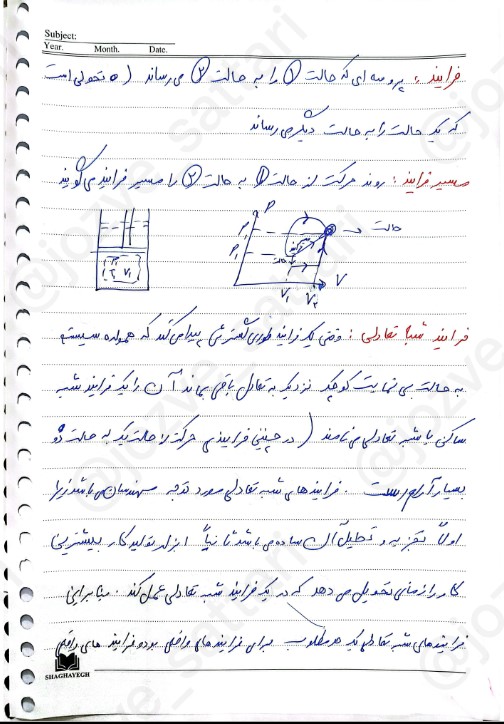 Subject:
Year. Month. Date.
فرایند : پروسه ای که حالت ① را به حالت ② می رساند ( تحولی است
که یک حالت را به حالت دیگر می رساند
مسیر فرایند : روند حرکت از حالت ① به حالت ② را مسیر فرایند می گویند
P
حالت
V
فرایند شبه تعادلی : وقتی یک فرایند طوری گسترش پیدا می کند که همواره سیستم
به حالت بی نهایت کوچک نزدیک به تعادل باقی بماند آن را یک فرایند شبه
ساکن یا شبه تعادلی می نامند ( در چنین فرایندی حرکت از حالت یک به حالت دو
بسیار آرام است . فرایندهای شبه تعادلی مورد توجه مهندسان می باشد زیرا
اولاً تجزیه و تحلیل آن ساده می باشد ثانیاً ابزار تولید کار بیشترین
کار را زمانی تحویل می دهد که در یک فرایند شبه تعادلی عمل کند . بنابراین
فرایندهای شبه تعادلی مطلوب برای فرایندهای واقعی بوده فرایند های واقعی
SHAGHAYEGH
@jozve_sattari